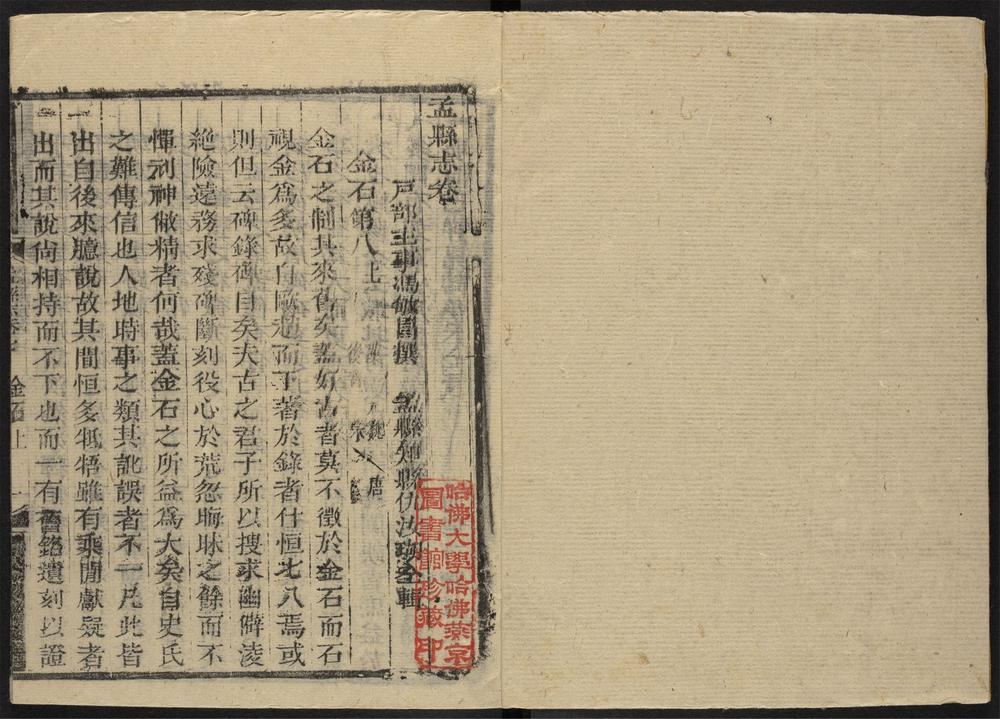 孟縣志卷
戶部主事馮敏昌撰 孟縣知縣仇汝瑚全輯
金石第八上 魏 周
後 宋
金石之制其來舊矣蓋好古者莫不徵於金石而石
視金爲多故自歐趙而下著於錄者什恒七八焉或
則但云碑錄碑目矣夫古之君子所以搜求幽僻淩
絶險遠務求殘碑斷刻役心於荒忽晦昧之餘而不
憚利神敝精者何哉蓋金石之所益爲大矣自史氏
之難傳信也人地時事之類其訛誤者不一凡此皆
出自後來臆說故其間恒多牴牾雖有乘間獻疑者
出而其說尚相持而不下也而一有 銘遺刻以證
金石上
哈佛大學哈佛燕京
圖書館珍藏印